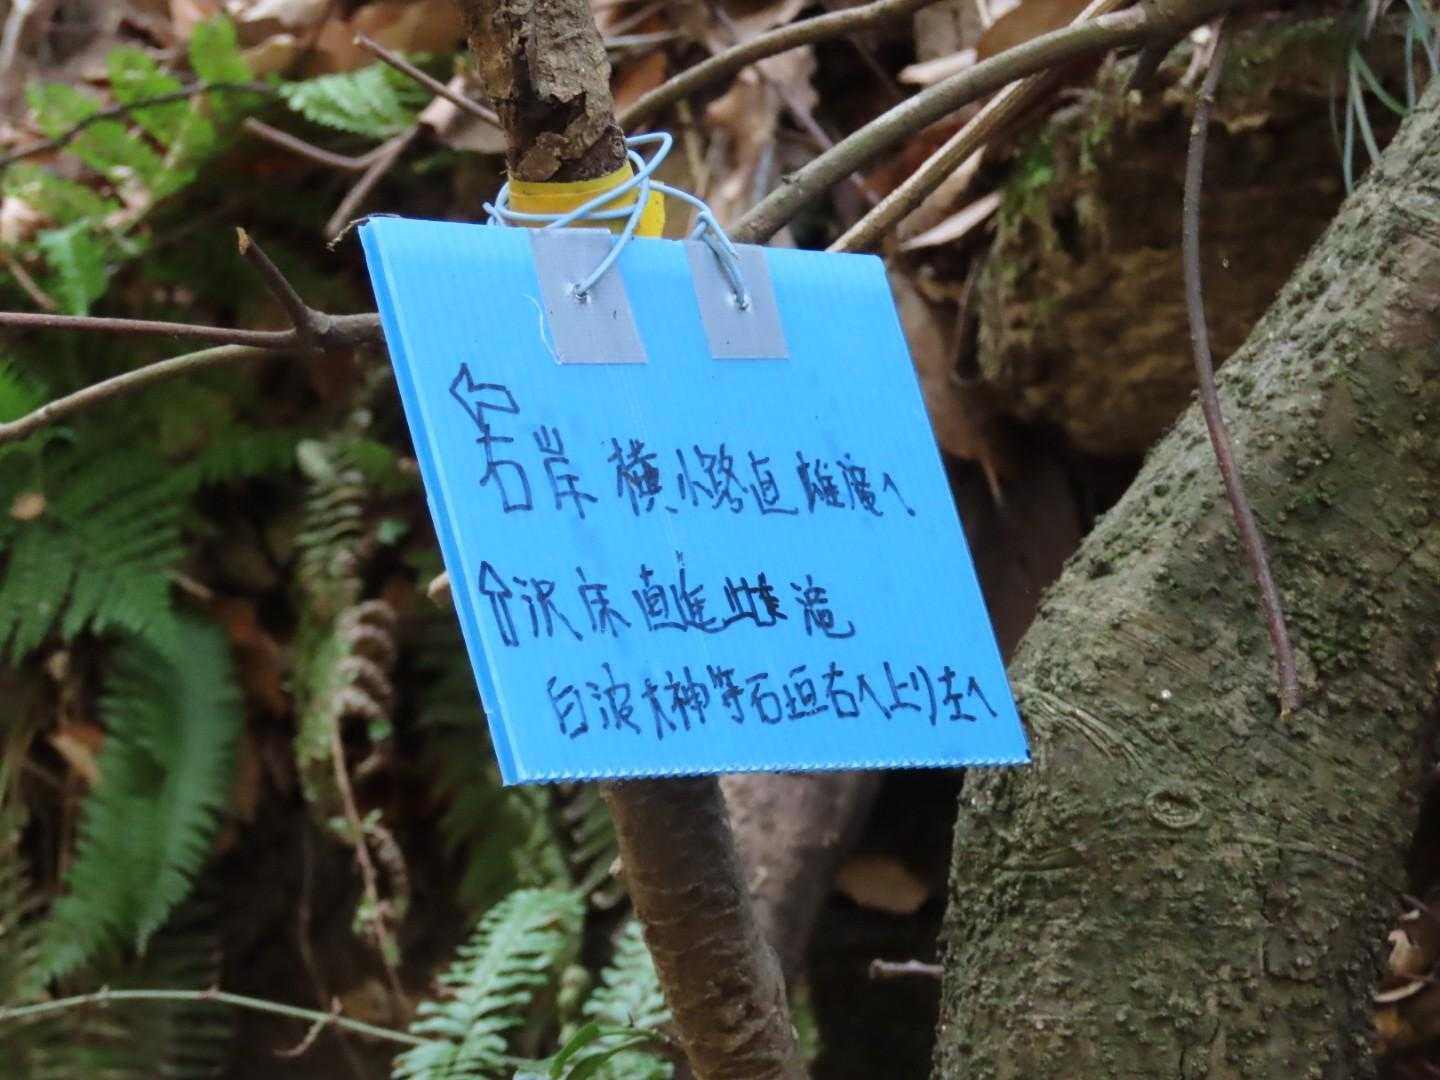 ⇐
右岸 横小路直 雄滝へ
⇧沢床直進雌滝
白波大神等石垣右へ上り左へ